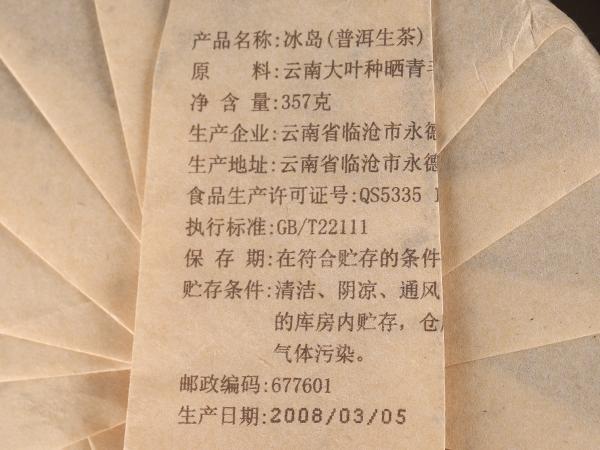 产品名称:冰岛(普洱生茶)
原 料:云南大叶种晒青
净含量:357克
生产企业:云南省临沧市永德
生产地址:云南省临沧市永德
食品生产许可证号:QS5335
执行标准:GB/T22111
保存期:在符合贮存的条件
贮存条件:清洁、阴凉、通风
的库房内贮存，仓
气体污染。
邮政编码:677601
生产日期:2008/03/05